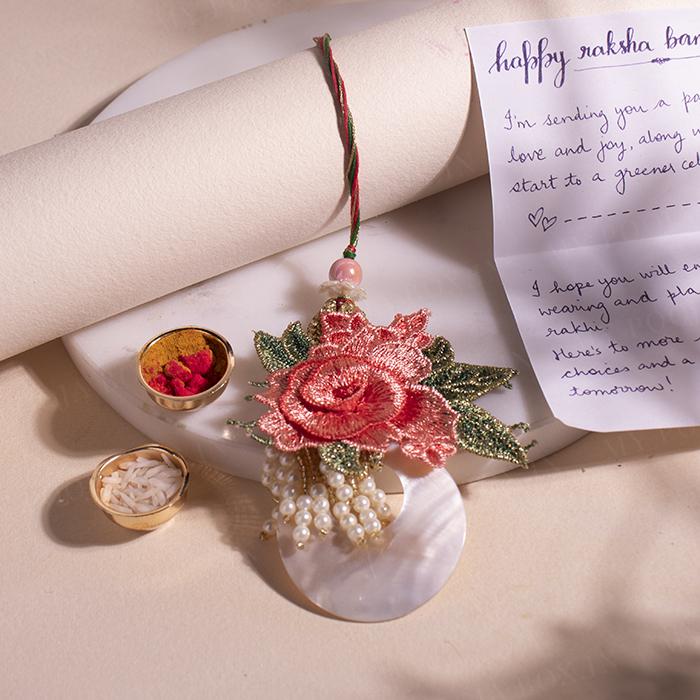 happy raksha
I'm sending you a
love and joy, along
start to a greener
I hope you will
wearing and
rakhi.
Here's to more
choices and a
tomorrow!